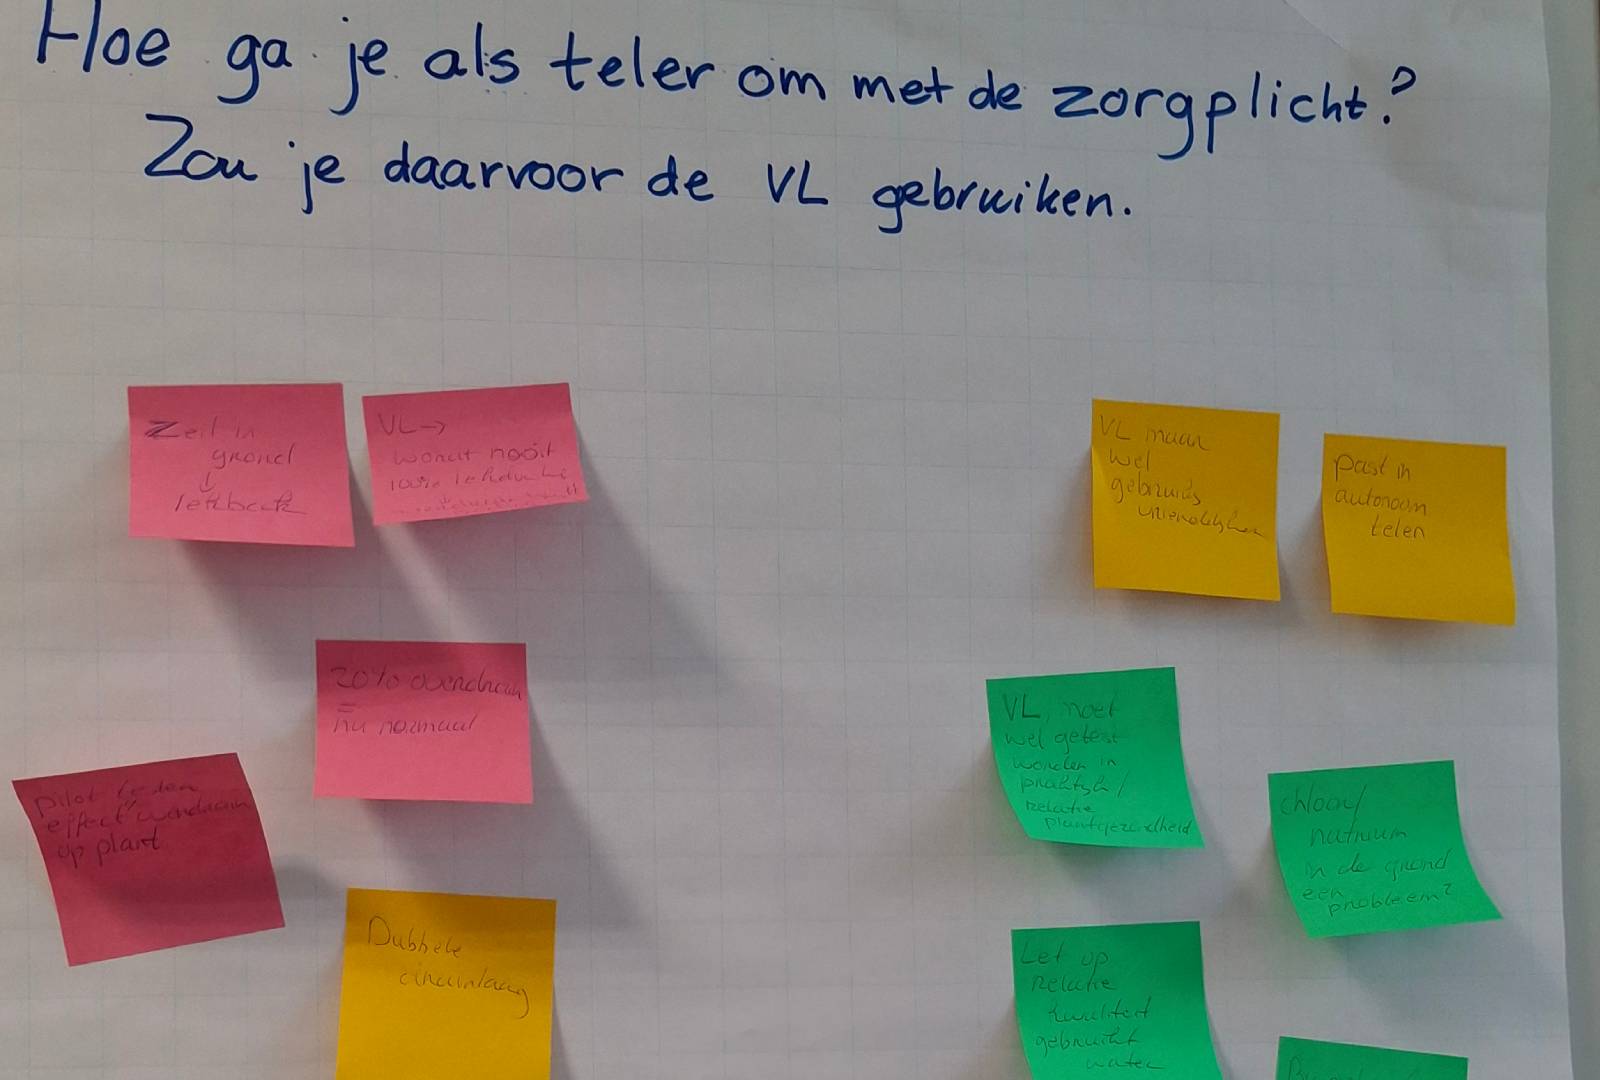 Hoe ga je als teler om met de zorgplicht?
Zou je daarvoor de VL gebruiken.
Zeil in
grond
↓
lekbak
VL →
wordt nooit
100%
20% overdrain
=
nu normaal
pilot
effect
op plant
Dubbele
drainlaag
VL maar
wel
gebruiks
vriendelijker
past in
autonoom
telen
VL, moet
wel getest
worden in
praktijk /
relatie
plantgezondheid
chloor/
natrium
in de grond
een
probleem?
Let op
relatie
kwaliteit
gebruikt
water